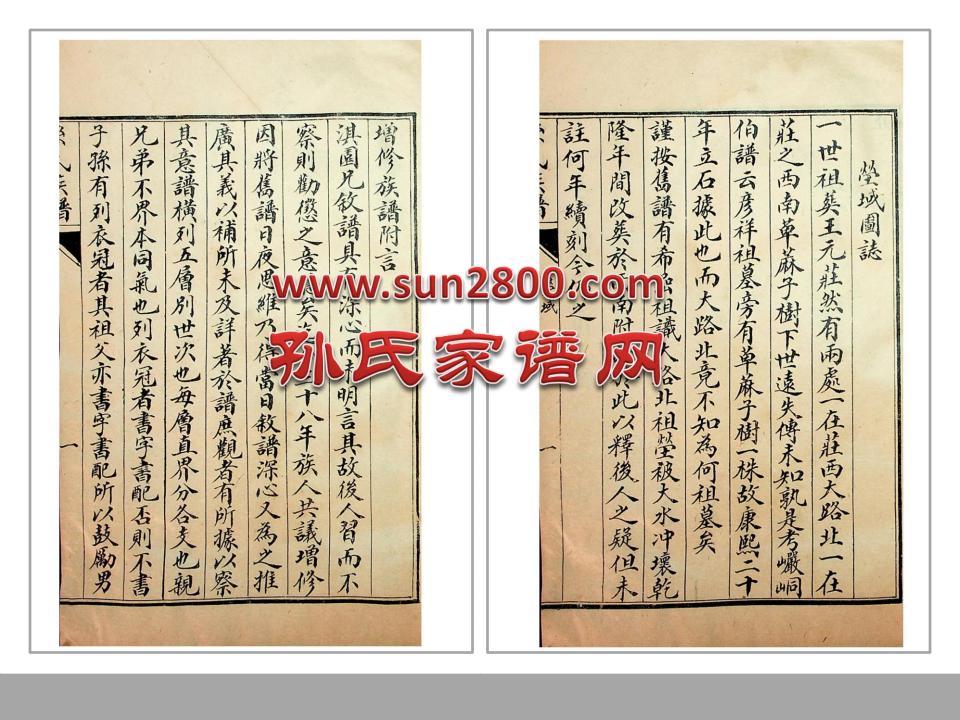 塋域圖誌
一世祖葬王元莊然有兩處一在莊西大路北一在
莊之西南草麻子樹下世遠失傳未知孰是考巖峒
伯譜云彦祥祖墓旁有草麻子樹一株故康熙二十
年立石據此也而大路北竟不知為何祖墓矣
謹按舊譜有希 祖識大路北祖塋被大水冲壞乾
隆年間改葬於 南附 於此以釋後人之疑但未
註何年續刻今 之
一
增修族譜附言
淇園兄敘譜具有深心而未明言其故後人習而不
察則勸懲之意 矣 二十八年族人共議增修
因將舊譜日夜思維乃得當日敘譜深心又為之推
廣其義以補所未及詳著於譜庶觀者有所據以察
其意譜橫列五層別世次也每層直界分各支也親
兄弟不界本同氣也列衣冠者書字書配否則不書
子孫有列衣冠者其祖父亦書字書配所以鼓勵男
氏族譜
一
www.sun2800.com
孙氏家谱网